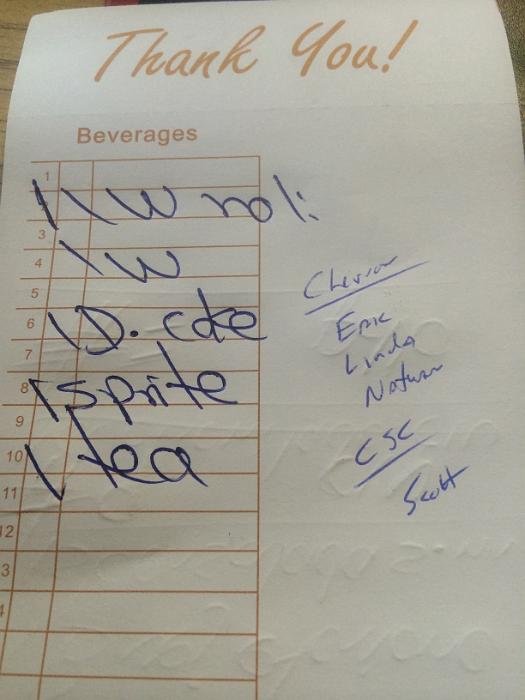 Thank You!
Beverages
1
3
4
5
6
7
8
9
10
11
12
3
4
1 1 W no l:
1 W
1 D. coke
1 sprite
1 tea
Chevron
Eric
Linda
Nathan
CSC
Scott